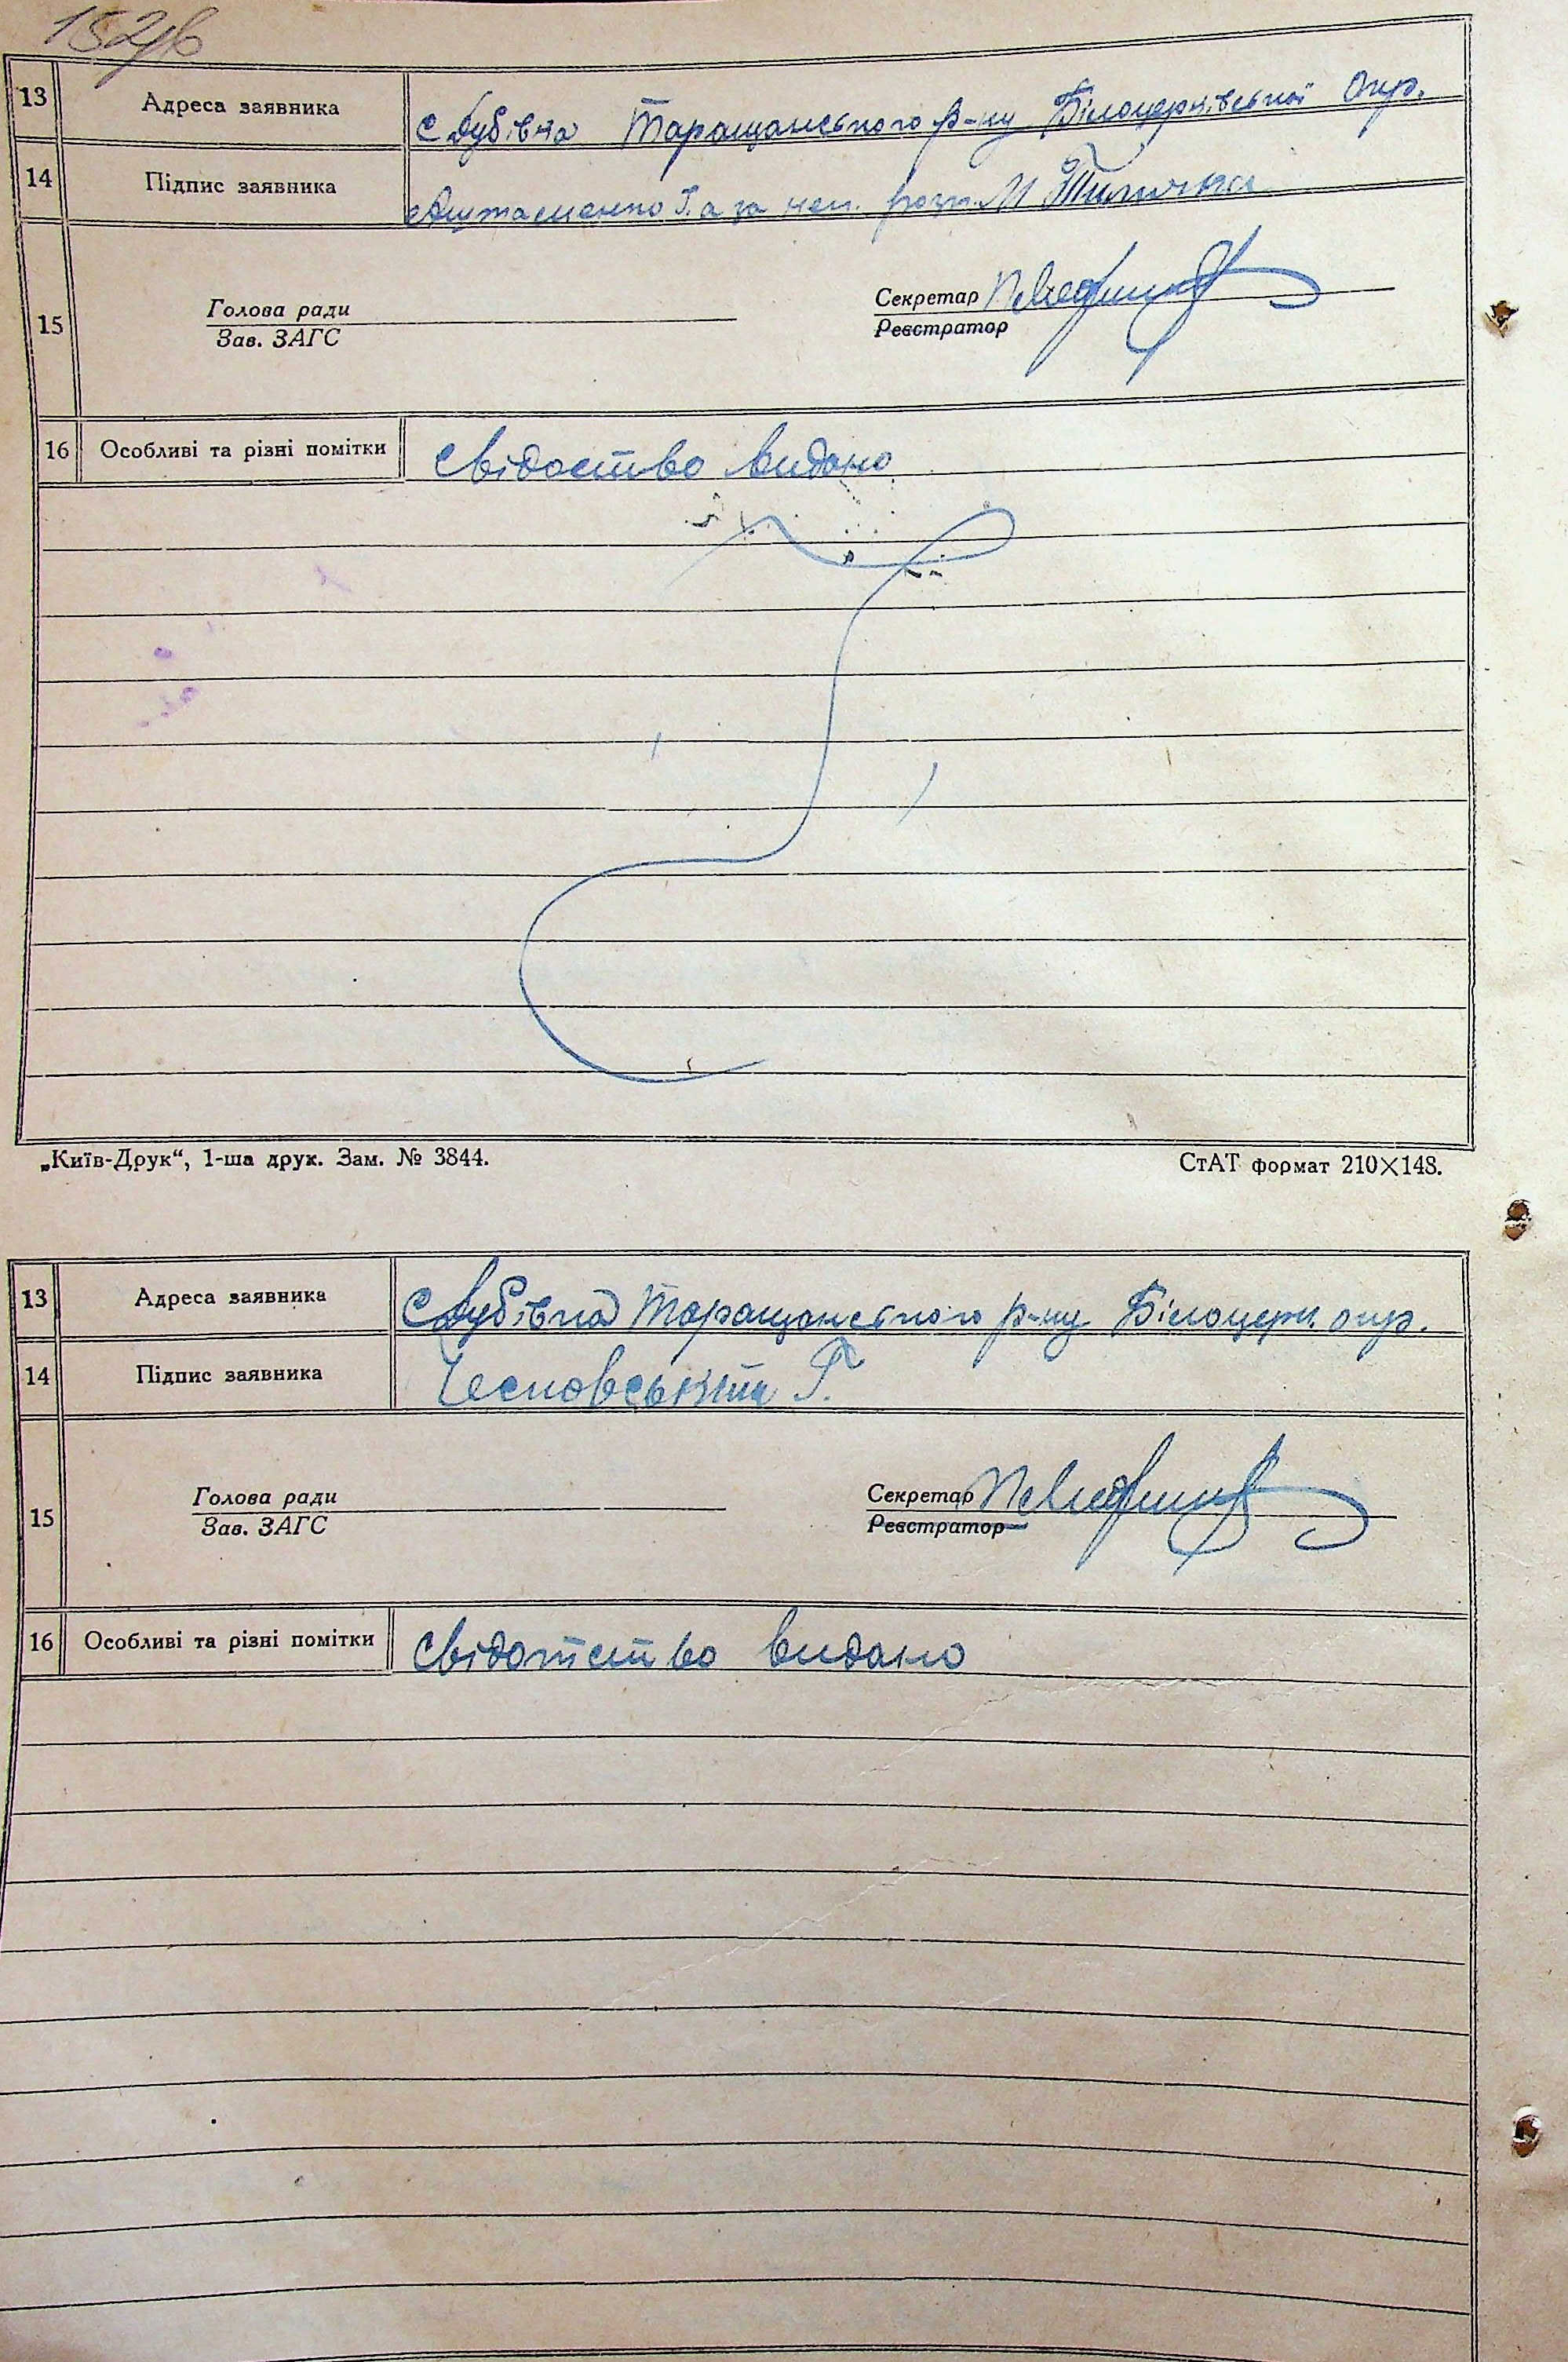 13 Адреса заявника с Дубівка Таращанського р-ну Білоцерківської Окр.
14 Підпис заявника за неп. розп. М
15 Голова ради Секретар
Зав. ЗАГС Реєстратор
16 Особливі та різні помітки Свідоство видано
„Київ-Друк“, 1-ша друк. Зам. № 3844. СтАТ формат 210×148.
13 Адреса заявника с Дубівка Таращанського р-ну Білоцерк. окр.
14 Підпис заявника Г.
15 Голова ради Секретар
Зав. ЗАГС Реєстратор
16 Особливі та різні помітки Свідотство видано